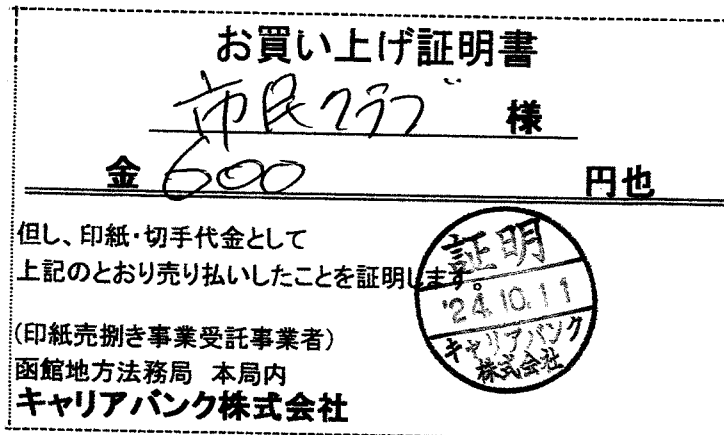 お買い上げ証明書
市民クラブ 様
金 600 円也
但し、印紙・切手代金として
上記のとおり売り払いしたことを証明します。
証明
'24.10.11
キャリアバンク
株式会社
(印紙売捌き事業受託事業者)
函館地方法務局 本局内
キャリアバンク株式会社